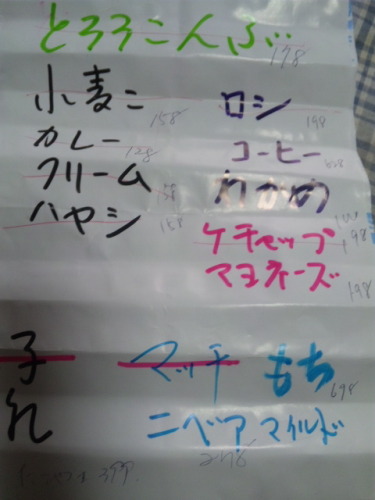 とろろこんぶ
198
小麦こ
158
ロシ
198
カレー
128
コーヒー
クリーム
158
わかめ
ハヤシ
158
ケチャップ
198
マヨネーズ
198
子 マッチ もち
698
れ ニベアマイルド
398